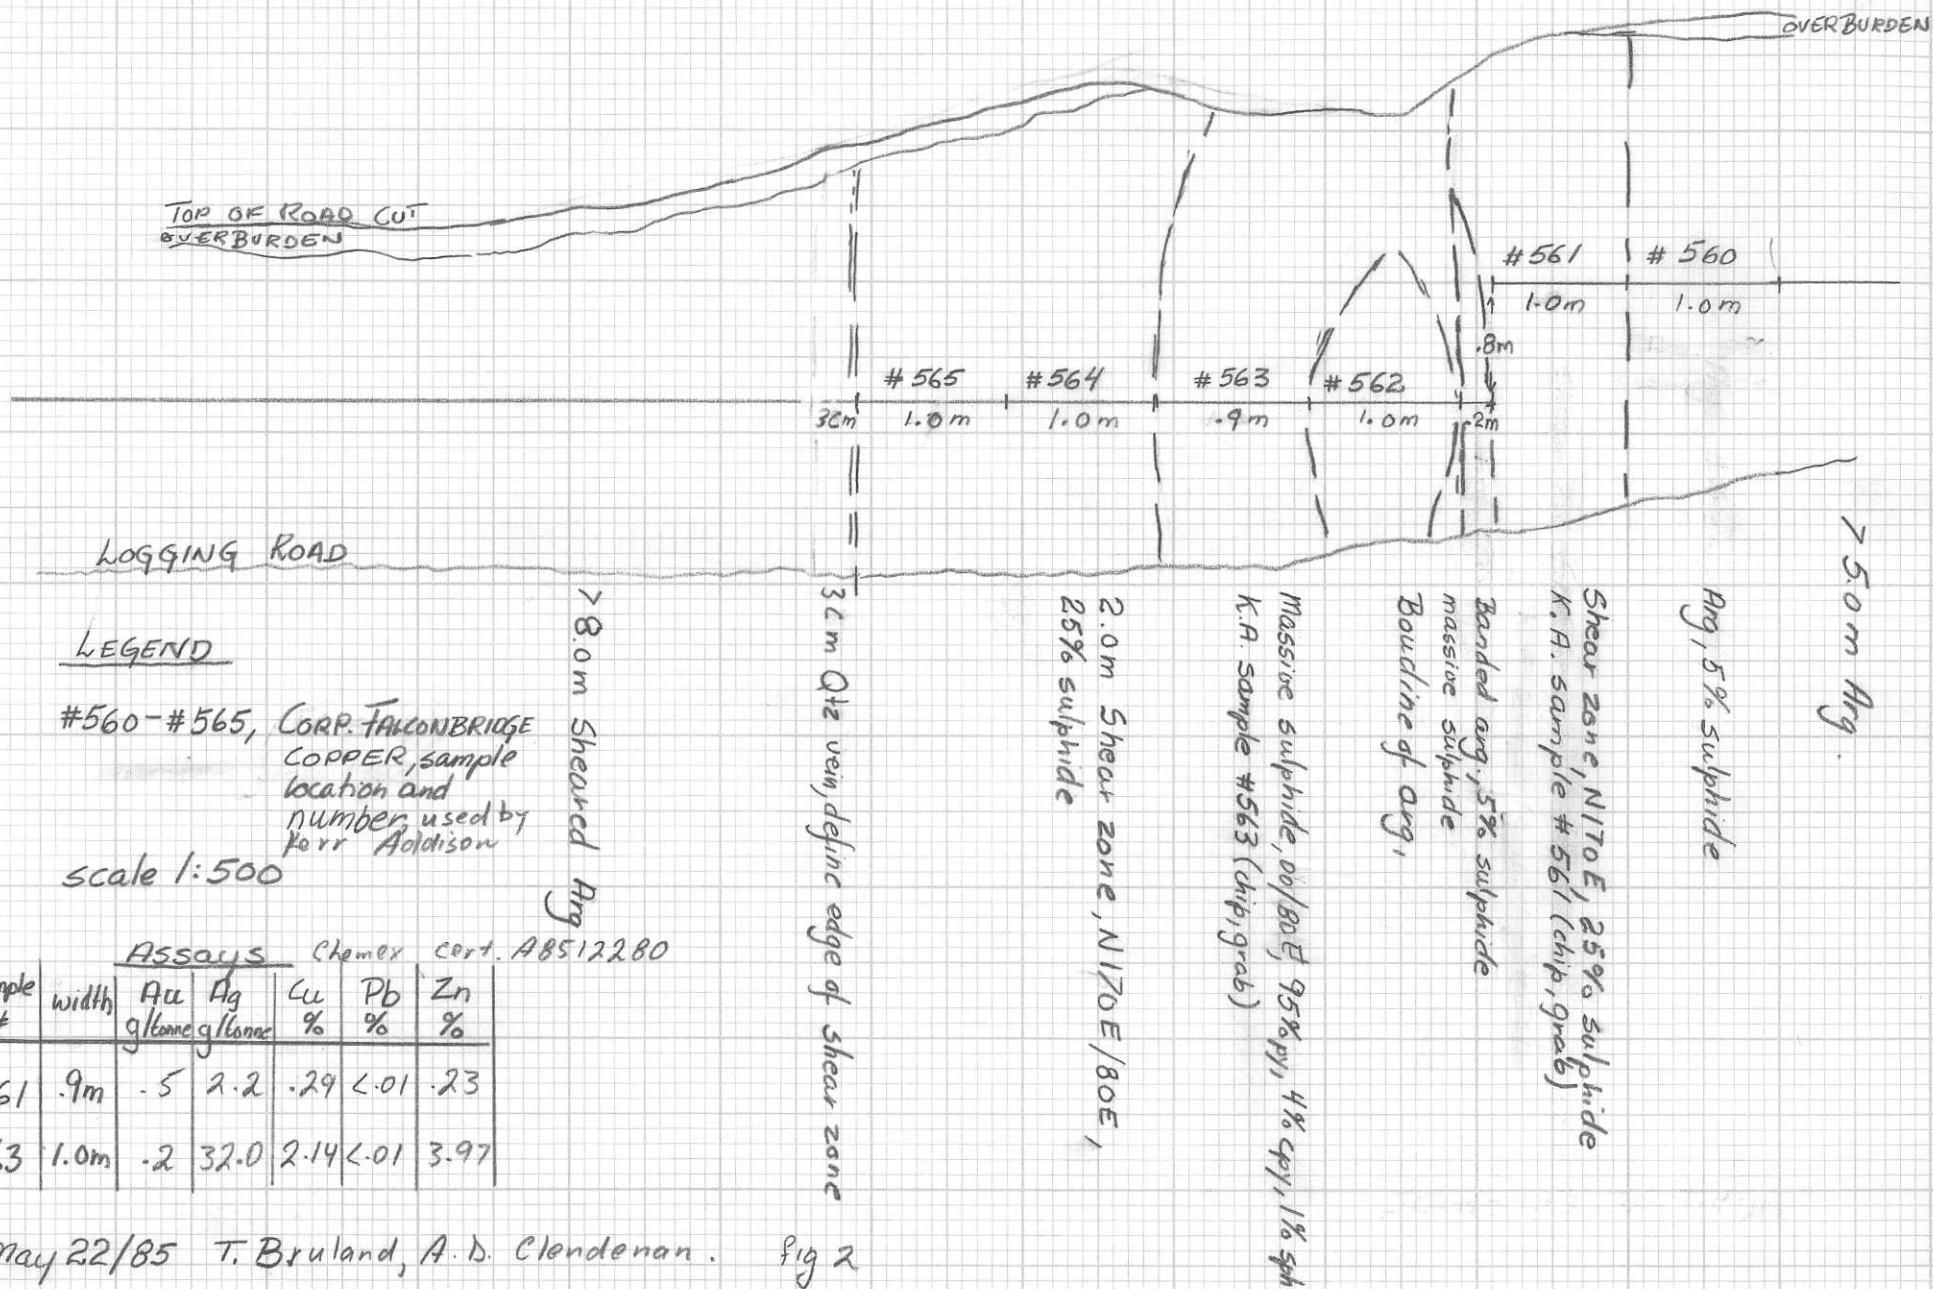 OVERBURDEN
TOP OF ROAD CUT
OVERBURDEN
#561
# 560
1.0m
1.0m
.8m
#565
#564
#563
#562
3cm
1.0m
1.0m
.9m
1.0m
.2m
LOGGING ROAD
>8.0m Sheared Arg
3cm Qtz vein, define edge of shear zone
2.0m Shear zone, N170E/80E,
25% sulphide
Massive sulphide, 00/80E, 95% py, 4% cpy, 1% sph
K.A. sample #563 (chip, grab)
Boudine of arg,
massive sulphide
Banded arg, 5% sulphide
Shear zone, N170E, 25% sulphide
K.A. sample #561 (chip, grab)
Arg, 5% sulphide
>5.0m Arg.
LEGEND
#560-#565, CORP. FALCONBRIDGE
COPPER, sample
location and
number, used by
Kerr Addison
scale 1:500
Assays Chemex cert. A8512280
mple width Au Ag Cu Pb Zn
# g/tonne g/tonne % % %
61 .9m .5 2.2 .29 <.01 .23
3 1.0m .2 32.0 2.14 <.01 3.97
May 22/85 T. Bruland, A.D. Clendenan. fig 2